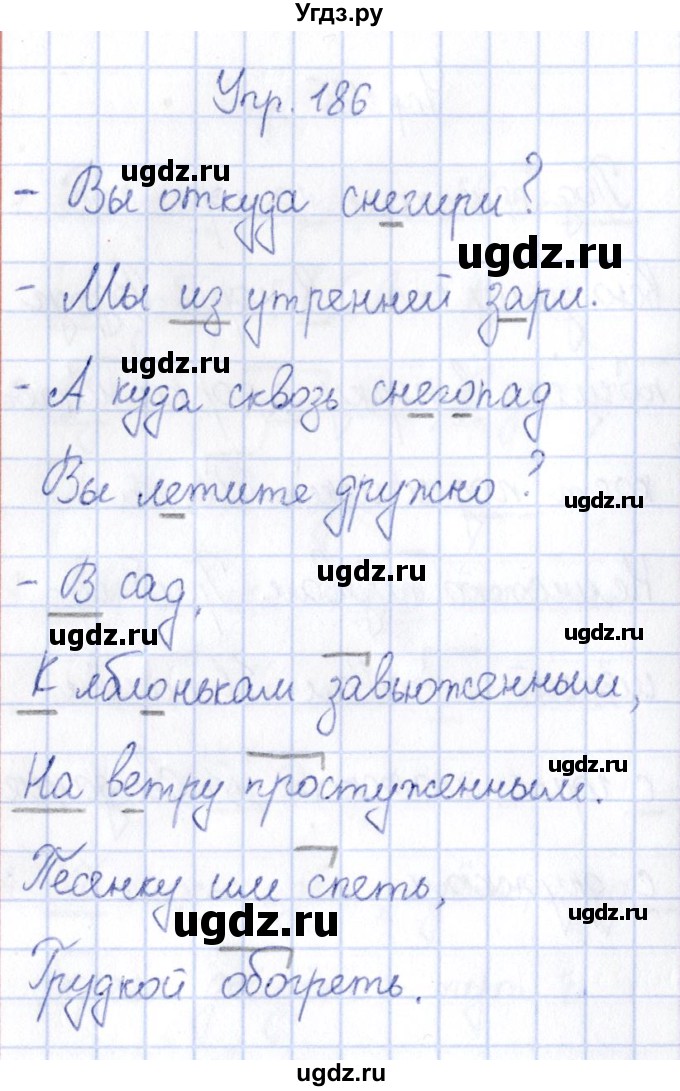 Угдз.ру
Упр. 186
ugdz.ru
- Вы откуда снегири?
ugdz.ru
- Мы из утренней зари.
ugdz.ru
- А куда сквозь снегопад
Вы летите дружно?
ugdz.ru
ugdz.ru
- В сад,
ugdz.ru
ugdz.ru
К яблонькам завьюженным,
ugdz.ru
На ветру простуженным.
Песенку им спеть,
ugdz.ru
ugdz.ru
Грудкой обогреть.
ugdz.ru